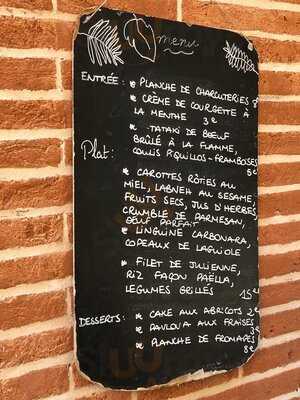 menu
ENTRÉE: * PLANCHE DE CHARCUTERIES 8€
* CRÈME DE COURGETTE À
LA MENTHE 3€
* TATAKI DE BOEUF
BRÛLÉ À LA FLAMME,
COULIS PIQUILLOS-FRAMBOISES
6€
Plat:
* CAROTTES RÔTIES AU
MIEL, LABNEH AU SESAME,
FRUITS SECS, JUS D'HERBES,
CRUMBLE DE PARMESAN,
OEUF PARFAIT
* LINGUINE CARBONARA,
COPEAUX DE LAGUIOLE
* FILET DE JULIENNE,
RIZ FAÇON PAËLLA,
LEGUMES GRILLÉS 15€
DESSERTS: * CAKE AUX ABRICOTS 2€
* PAVLOVA AUX FRAISES 3€
* PLANCHE DE FROMAGES
8€